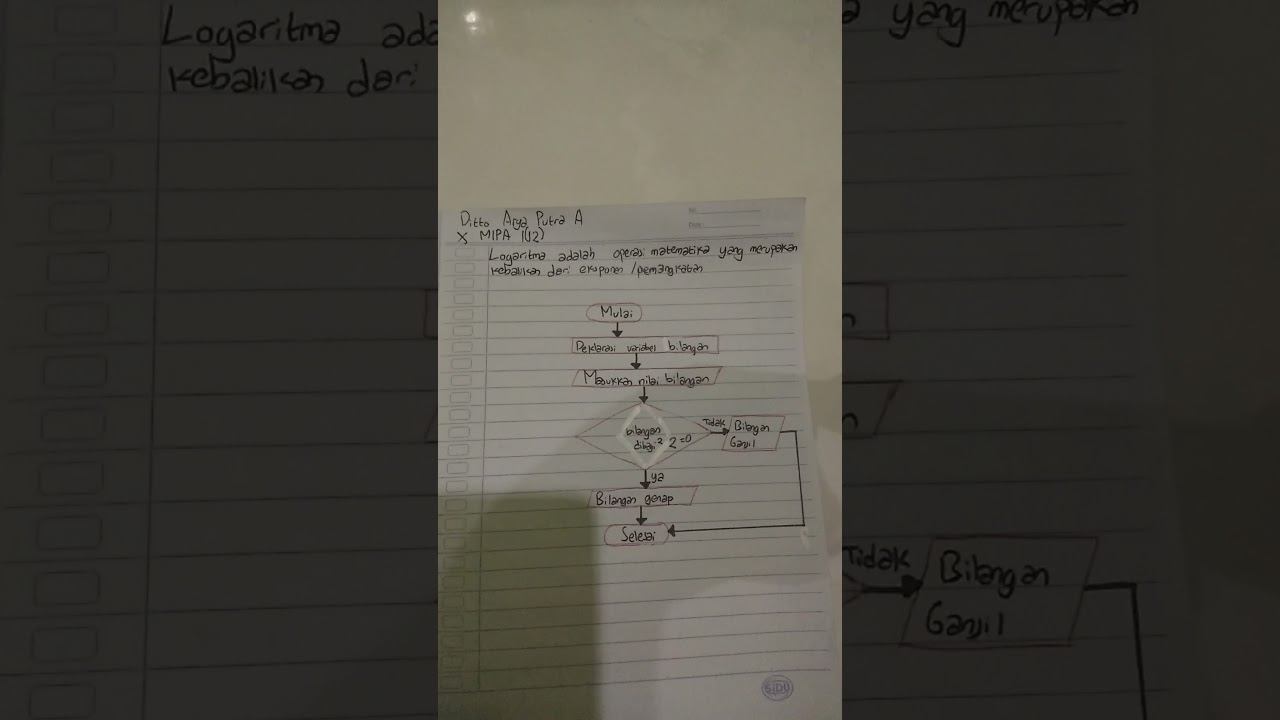 Ditto Arya Putra A
X MIPA 1(12)
No:
Date:
Logaritma adalah operasi matematika yang merupakan
kebalikan dari eksponen /pemangkatan
Mulai
Deklarasi variabel bilangan
Masukkan nilai bilangan
bilangan
dibagi 2 =0
Tidak
Bilangan
Ganjil
ya
Bilangan genap
Selesai
SIDU
Logaritma ada
kebalikan dari
a yang merupakan
Tidak
Bilangan
Ganjil